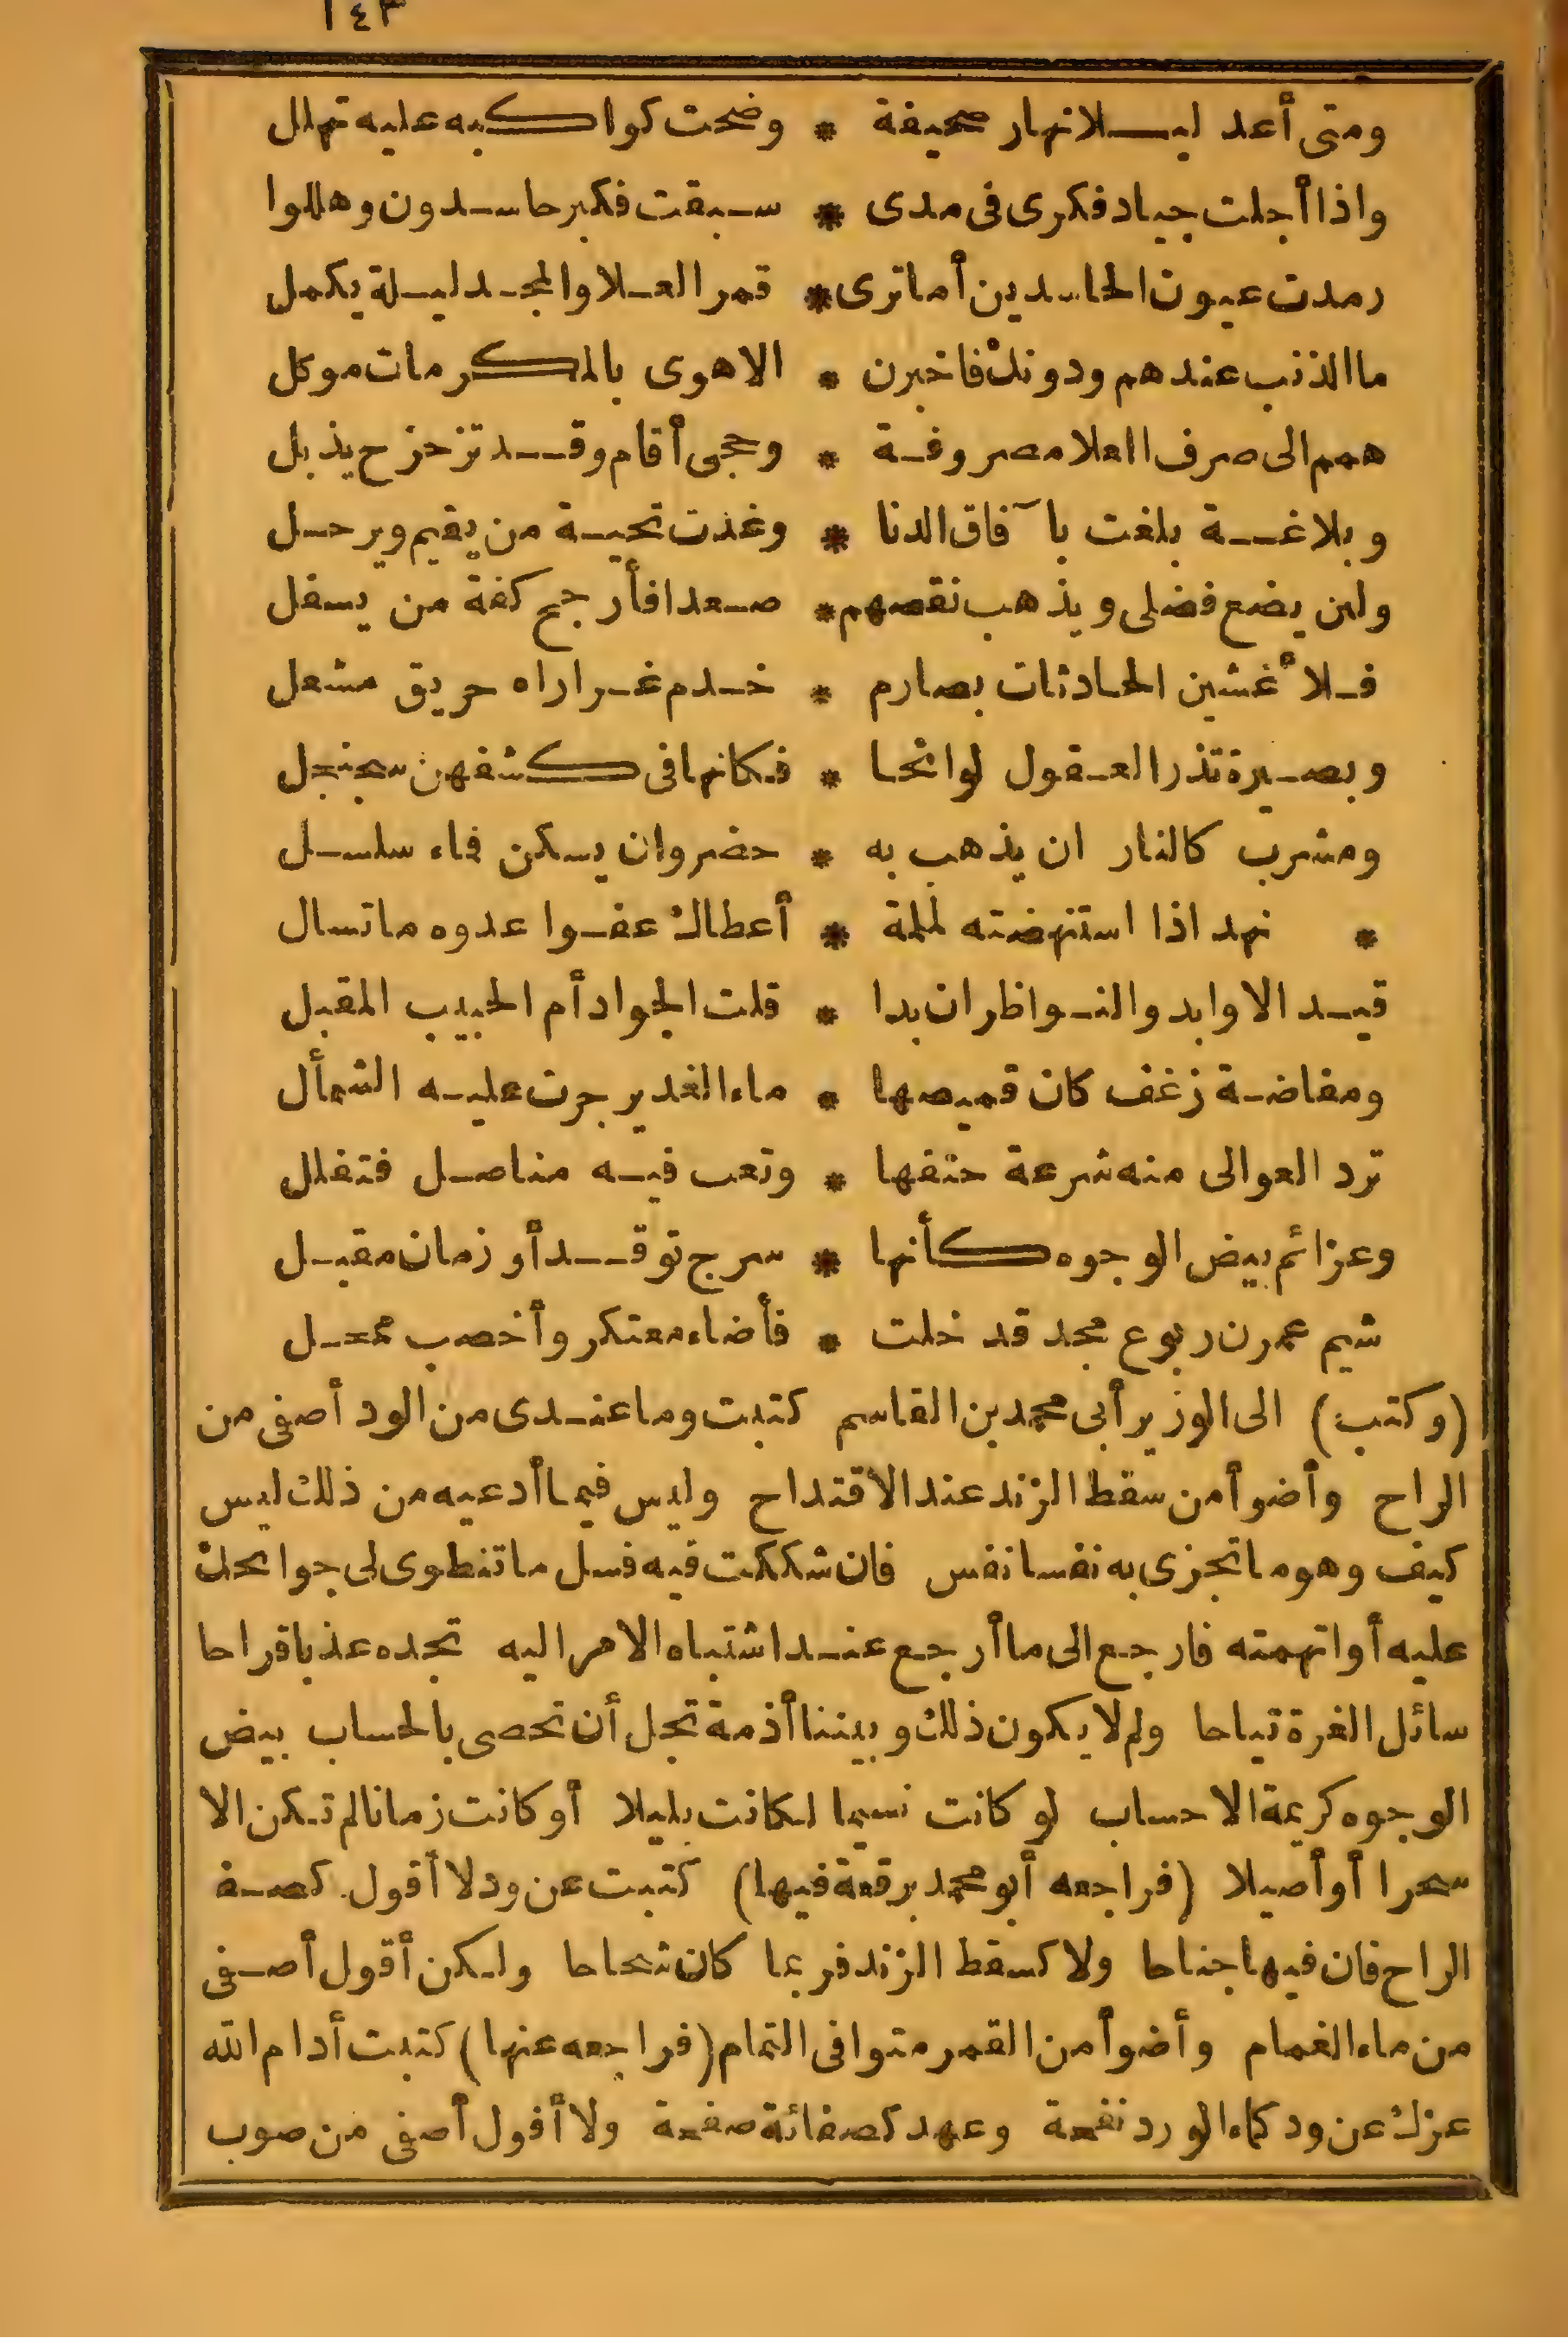 ١٤٣
ومتى أعد ليلا نهار صحيفة * وضحت كواكبه عليه تهلل
واذا أجلت جياد فكرى فى مدى * سبقت فكبر حاسدون وهللوا
رمدت عيون الحاسدين أما ترى * قمر العلا والمجد ليلة يكمل
ما الذنب عندهم ودونك فاخبرن * الا هوى بالمكرمات موكل
همم الى صرف العلا مصروفة * وحجى أقام وقد تزحزح يذبل
وبلاغة بلغت بآفاق الدنا * وغذت تحية من يقيم ويرحل
ولئن يضع فضلى ويذهب نقصهم * صعدا فأرجح كفة من يسفل
فلأغشين الحادثات بصارم * خدم غراراه حريق مشعل
وبصيرة تذر العقول لوائحا * فكانها فى كشفهن سجنجل
ومشرب كالنار ان يذهب به * حضر وان يسكن فاء سلسل
* نهد اذا استنهضته لملمة * أعطاك عفوا عدوه ما تسال
قيد الاوابد والنواظر ان بدا * قلت الجواد أم الحبيب المقبل
ومفاضة زغف كان قميصها * ماء الغدير جرت عليه الشمأل
ترد العوالى منه شرعة حتفها * وتعب فيه مناصل فتفلل
وعزائم بيض الوجوه كأنها * سرج توقد أو زمان مقبل
شيم عمرن ربوع مجد قد خلت * فأضاء معتكر وأخصب ممحل
(وكتب) الى الوزير أبى محمد بن القاسم كتبت وما عندى من الود أصفى من
الراح وأضوأ من سقط الزند عند الاقتداح وليس فيما أدعيه من ذلك لبس
كيف وهو ما تجزى به نفسا نفس فان شككت فيه فسل ما تنطوى لى جوانحك
عليه أو اتهمته فارجع الى ما أرجع عند اشتباه الامر اليه تجده عذبا قراحا
سائل الغرة تياحا ولم لا يكون ذلك وبيننا أذمة تجل أن تحصى بالحساب بيض
الوجوه كريمة الاحساب لو كانت نسيما لكانت بليلا أو كانت زمانا لم تكن الا
سحرا أو أصيلا (فراجعه أبو محمد برقعة فيها) كتبت عن ود لا أقول كصفة
الراح فان فيها جناحا ولا كسقط الزند فربما كان شحاحا ولكن أقول أصفى
من ماء الغمام وأضوأ من القمر متوافى التمام (فراجعه عنها) كتبت أدام الله
عزك عن ود كماء الورد نفحة وعهد كصفائه صفحة ولا أقول أصفى من صوب